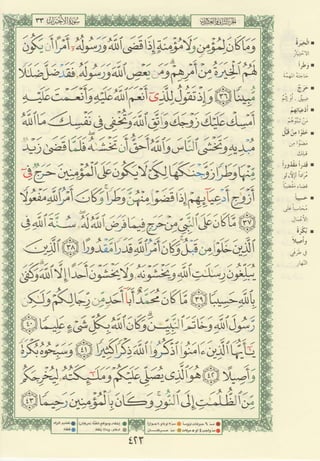 سُورَةُ الأَحْزَابِ ٣٣
وَمَا كَانَ لِمُؤْمِنٍ وَلَا مُؤْمِنَةٍ إِذَا قَضَى ٱللَّهُ وَرَسُولُهُۥٓ أَمْرًا أَن يَكُونَ
لَهُمُ ٱلْخِيَرَةُ مِنْ أَمْرِهِمْ ۗ وَمَن يَعْصِ ٱللَّهَ وَرَسُولَهُۥ فَقَدْ ضَلَّ ضَلَٰلًا
مُّبِينًا ٣٦ وَإِذْ تَقُولُ لِلَّذِىٓ أَنْعَمَ ٱللَّهُ عَلَيْهِ وَأَنْعَمْتَ عَلَيْهِ
أَمْسِكْ عَلَيْكَ زَوْجَكَ وَٱتَّقِ ٱللَّهَ وَتُخْفِى فِى نَفْسِكَ مَا ٱللَّهُ
مُبْدِيهِ وَتَخْشَى ٱلنَّاسَ وَٱللَّهُ أَحَقُّ أَن تَخْشَىٰهُ ۖ فَلَمَّا قَضَىٰ زَيْدٌ
مِّنْهَا وَطَرًا زَوَّجْنَٰكَهَا لِكَىْ لَا يَكُونَ عَلَى ٱلْمُؤْمِنِينَ حَرَجٌ فِىٓ
أَزْوَٰجِ أَدْعِيَآئِهِمْ إِذَا قَضَوْا۟ مِنْهُنَّ وَطَرًا ۚ وَكَانَ أَمْرُ ٱللَّهِ مَفْعُولًا
٣٧ مَّا كَانَ عَلَى ٱلنَّبِىِّ مِنْ حَرَجٍ فِيمَا فَرَضَ ٱللَّهُ لَهُۥ ۖ سُنَّةَ ٱللَّهِ فِى
ٱلَّذِينَ خَلَوْا۟ مِن قَبْلُ ۚ وَكَانَ أَمْرُ ٱللَّهِ قَدَرًا مَّقْدُورًا ٣٨ ٱلَّذِينَ
يُبَلِّغُونَ رِسَٰلَٰتِ ٱللَّهِ وَيَخْشَوْنَهُۥ وَلَا يَخْشَوْنَ أَحَدًا إِلَّا ٱللَّهَ ۗ وَكَفَىٰ
بِٱللَّهِ حَسِيبًا ٣٩ مَّا كَانَ مُحَمَّدٌ أَبَآ أَحَدٍ مِّن رِّجَالِكُمْ وَلَٰكِن
رَّسُولَ ٱللَّهِ وَخَاتَمَ ٱلنَّبِيِّـۧنَ ۗ وَكَانَ ٱللَّهُ بِكُلِّ شَىْءٍ عَلِيمًا
٤٠ يَٰٓأَيُّهَا ٱلَّذِينَ ءَامَنُوا۟ ٱذْكُرُوا۟ ٱللَّهَ ذِكْرًا كَثِيرًا ٤١ وَسَبِّحُوهُ بُكْرَةً
وَأَصِيلًا ٤٢ هُوَ ٱلَّذِى يُصَلِّى عَلَيْكُمْ وَمَلَٰٓئِكَتُهُۥ لِيُخْرِجَكُم
مِّنَ ٱلظُّلُمَٰتِ إِلَى ٱلنُّورِ ۚ وَكَانَ بِٱلْمُؤْمِنِينَ رَحِيمًا ٤٣
الْخِيَرَةُ
الاختيار
وَطَرًا
حاجته المهمة
حَرَجٌ
ضيق أو إثم
أَدْعِيَائِهِمْ
من تبنوهم
خَلَوْا مِنْ قَبْلُ
مضوا من
قبلك
قَدَرًا مَقْدُورًا
حَسِيبًا
محاسبا على
الأعمال
بُكْرَةً
وَأَصِيلًا
في طرفي
النهار
٤٢٣